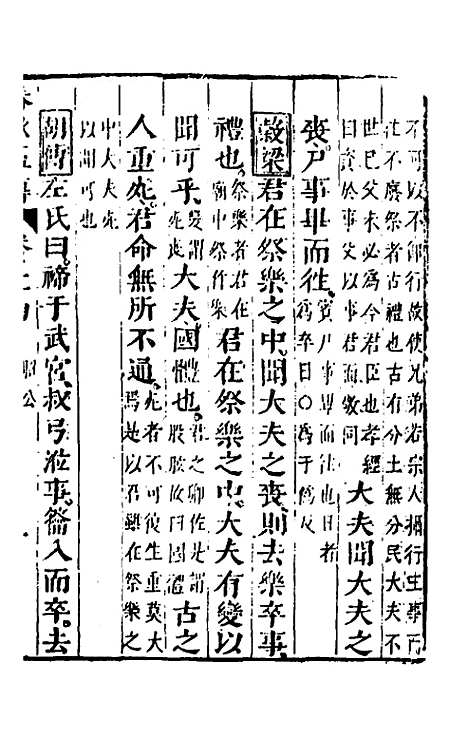 不可以不卽行故使兄弟若宗人攝行主事而
往不廢祭者古禮也古有分土無分民大夫不
世已父未必爲今君臣也孝經
曰資於事父以事君而敬同 大夫聞大夫之
喪尸事畢而往 賓尸事畢而往也日者
爲卒日○爲于僞反
穀梁 君在祭樂之中聞大夫之喪則去樂卒事
禮也 祭樂者君在
廟中祭作樂 君在祭樂之中大夫有變以
聞可乎 變謂
死喪 大夫國體也 君之卿佐是謂
股肱故曰國體 古之
人重死君命無所不通 死者不可復生重莫大
焉是以君雖在祭樂之
中大夫死
以聞可也
胡傳 左氏曰禘于武宮叔弓涖事籥入而卒去
昭公